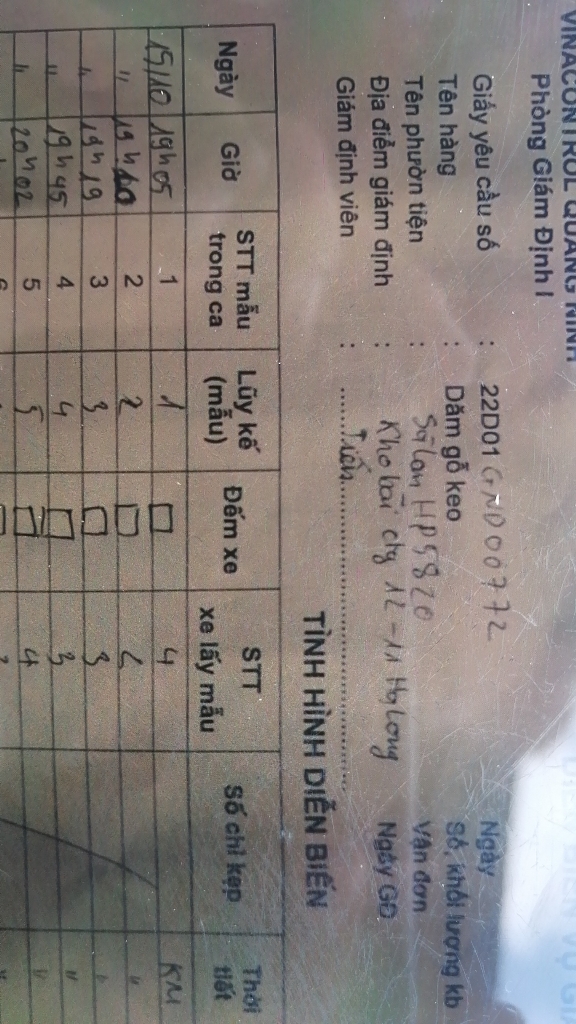 VINACONTROL QUẢNG NINH
Phòng Giám Định I
Giấy yêu cầu số : 22D01 GND00772 Ngày
Tên hàng : Dăm gỗ keo Số, khối lượng kb
Tên phườn tiện : Sà lan HP5820 Vận đơn
Địa điểm giám định : Kho bãi cty 12-11 Hạ Long Ngày GĐ
Giám định viên : Tiến
TÌNH HÌNH DIỄN BIẾN
Ngày Giờ STT mẫu trong ca Lũy kế (mẫu) Đếm xe STT xe lấy mẫu Số chì kẹp Thời tiết
15/10 19h05 1 1 □ 4 KM
" 19h10 2 2 □ 2 "
" 19h19 3 3 □ 3 "
" 19h45 4 4 □ 3 "
" 20h02 5 5 □ 4 "